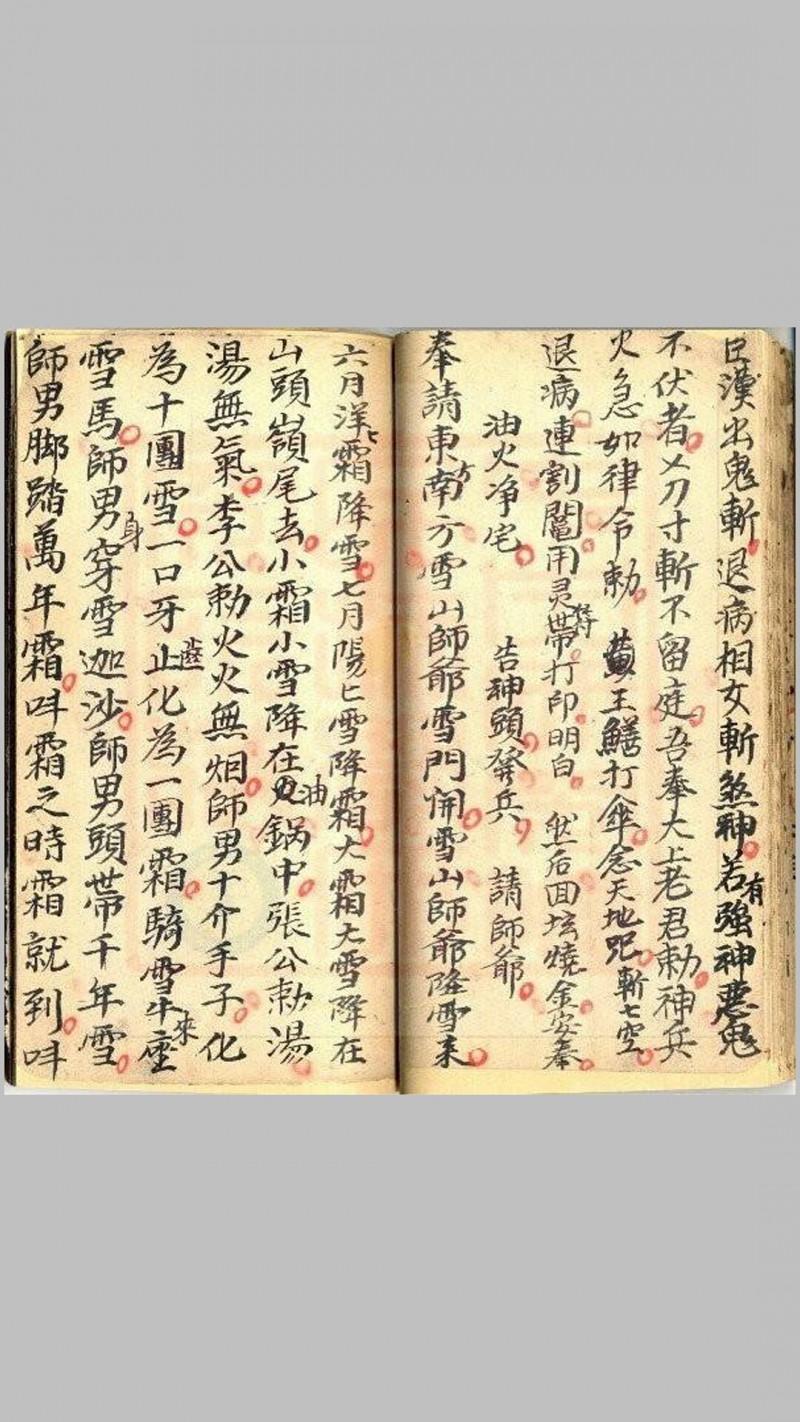 臣漢出鬼斬退病相女斬煞神若有強神惡鬼
不伏者乂刀寸斬不留庭吾奉大上老君勅神兵
火急如律令勅 黃王鱔打傘念天地咒斬七空
退病連割鬮用灵帶符打印明白 然后回坛燒金安奉
油火净宅 告神頭發兵 請師爺
奉請東南方雪山師爺雪門開雪山師爺降雪来
六月洋匕霜降雪七月陽匕雪降霜大霜大雪降在
山頭嶺尾去小霜小雪降在油鍋中張公勅湯
湯無氣李公勅火火無烟師男十介手子化
為十團雪一口牙齒化為一團霜騎雪牛來座
雪馬師男身穿雪迦沙師男頭帶千年雪
師男脚踏萬年霜叫霜之時霜就到叫